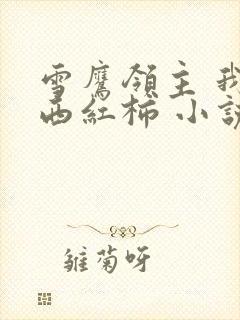 雪鷹領主 我
西紅柿 小說
雛菊呀